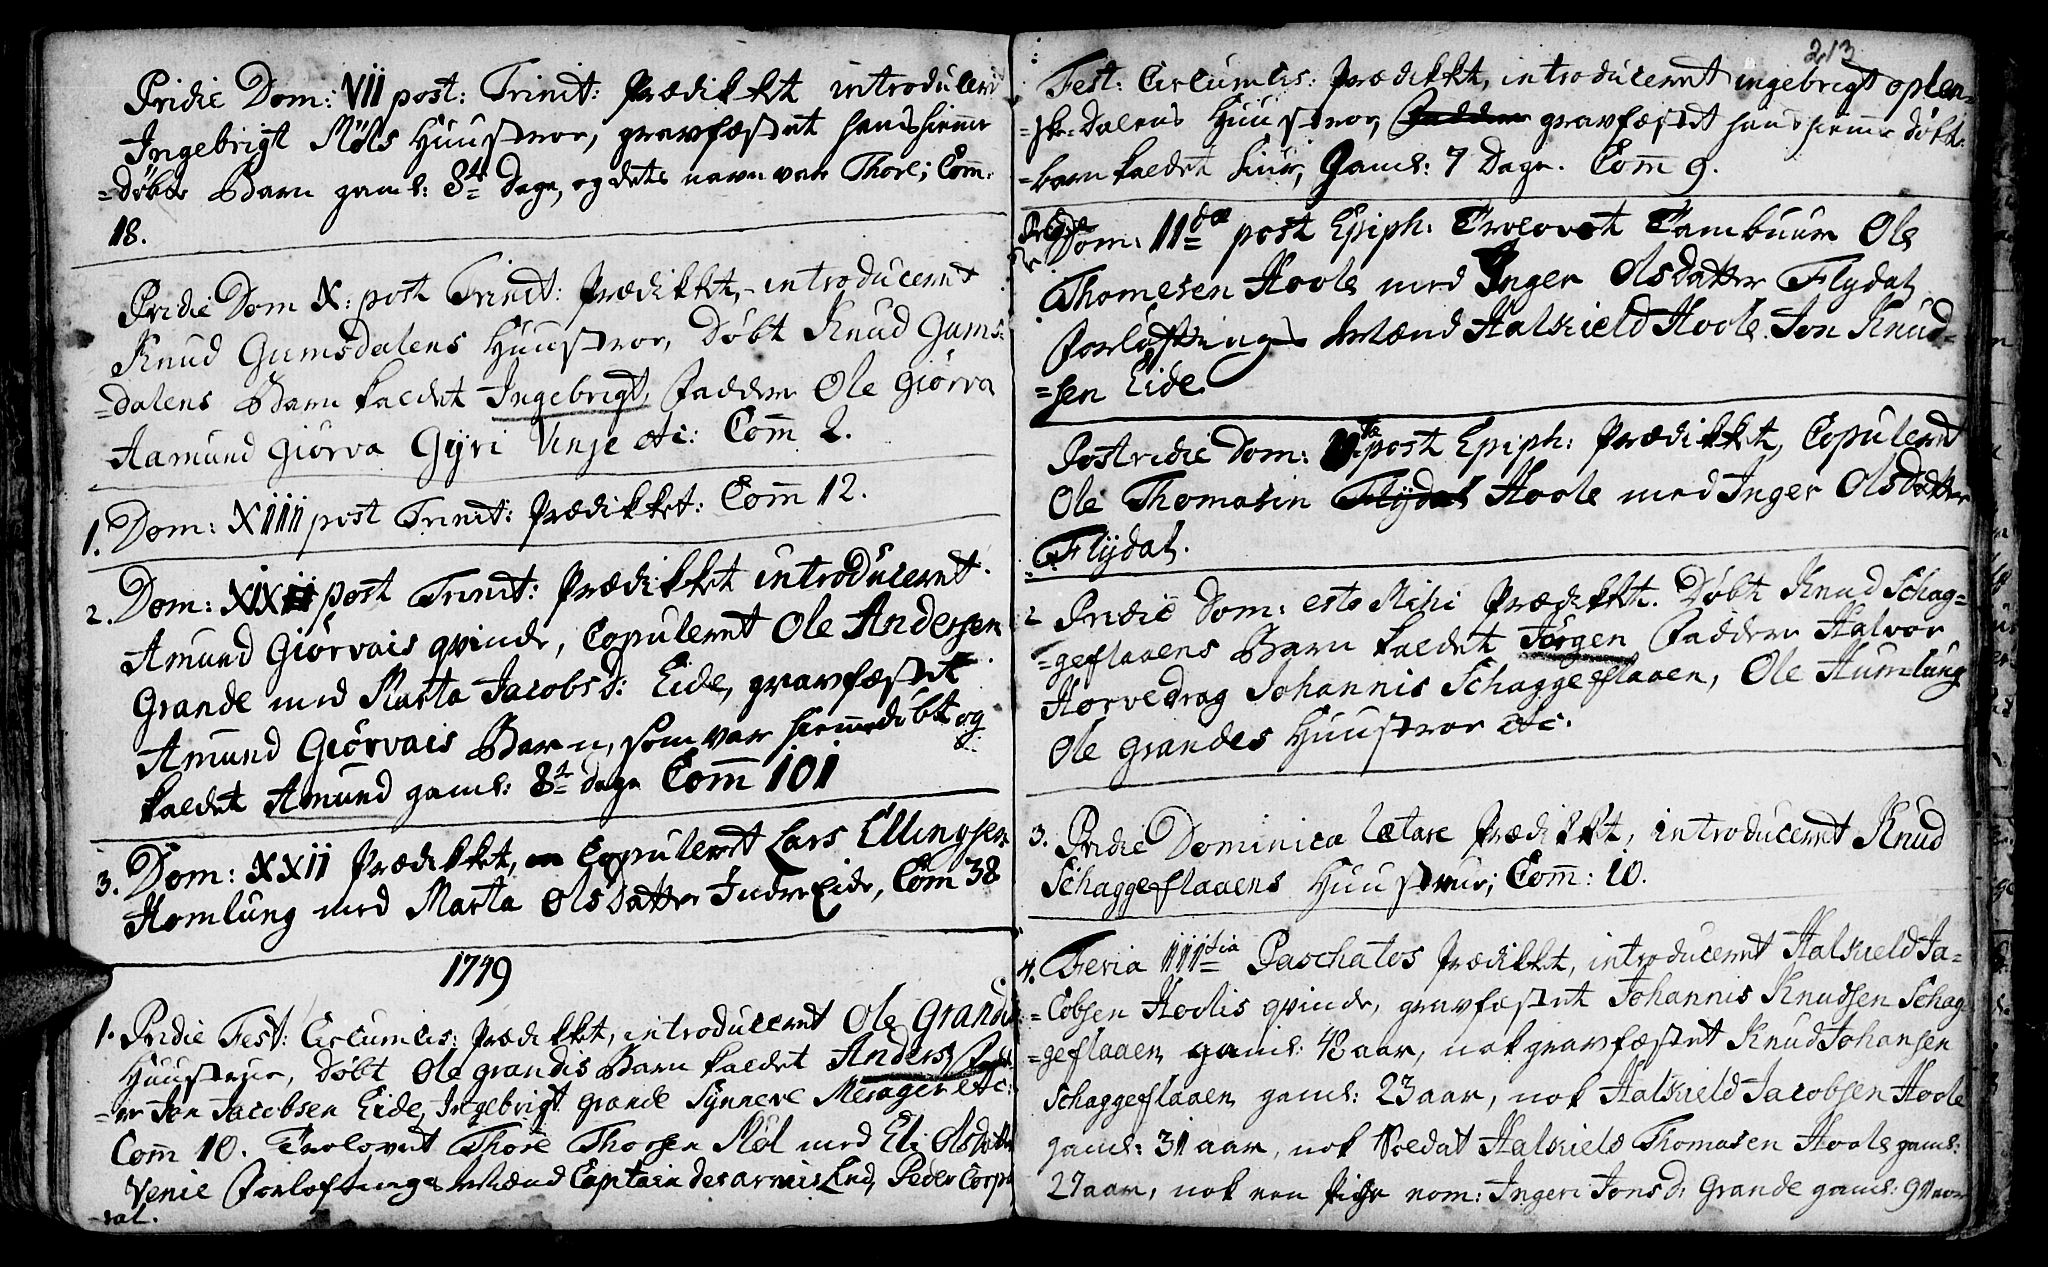 Pridie Dom: VII post: Trinit: Prædikket introducerit
Ingebrigt Møls Huustroe, gravfæstet hans hiemme
=døbte Barn gaml: 8te dage, og dets navn var Thore; Com̅:
18.
Pridie Dom X: post Trinit: Prædikket, introduceret
Knud Gumsdalens Huustroe, Døbt Knud Gums=
=dalens Barn kaldet Ingebrigt, Faddere Ole Giørva
Aamund Giörva Gyri Vinje etc: Com̅ 2.
1. Dom: XIIII post Trinit: Prædikket: Com̅ 12.
2. Dom: XIX post Trinit: Prædikket introduceret
Amund Giörvais qvinde, Copuleret Ole Andersen
Grande med Marta Jacobsd: Eide, gravfæstet
Amund Giörvais Barn, som var hiemmedöbt og
kaldet Amund gaml: 8te dage Com̅ 101
3. Dom: XXII Prædikket, Copuleret Lars Ellingsen
Homlung med Marta Olsdatter Indre Eide, Com̅ 38
1749
1. Pridie Fest: Circumcis: Prædikket, introduceret Ole Grandis
Huustrue, Døbt Ole grandis Barn kaldet Anders, Fadd=
=er Jon Jacobsen Eide, Ingebrigt grande Synneve Merager etc:
Com̅ 10. Trolovet Thore Thorsen Møl med Eli Olsdatter
Venie Forloftings Mænd Captain des armis Lud, Peder Corpo
=ral.
213
Fest: Circumcis: Prædikket, introduceret ingebrigt oplen=
=ske=dalens Huustroe, Faddere gravfæstet hans hiemme döbte
=barn kaldet Siur, Gaml: 7 Dage. Com̅ 9.
Pridie Dom: 11da post Epiph: Trolovet Tambuur Ole
Thomesen Hoole med Inger Olsdatter Flydal
Forløftnings Mænd Halkield Hoole. Jon Knud=
=sen Eide
Postridie Dom: post Epiph: Prædikket, Copuleret
Ole Thomasin Flydal Hoole med Inger Olsdatter
Flijdal.
2 Pridie Dom: esto Mihi Prædikket. Døbt Knud Schag=
=geflaaens Barn kaldet Jörgen Faddere Halvor
Horvedrag Johannis Schaggeflaaen, Ole Humlung
Ole grandes Huustroe etc.
3. Pridie Dominica Lætare Prædikket, introduceret Knud
Schaggeflaaens Huustrue; Com̅: 10.
4. Feria IIItia Paschatos Prædikket, introduceret Halkield Ja=
=cobsen Hoolis qvinde, gravfæstet Johannis Knudsen Schag=
=geflaaen gaml: 48 aar, nok gravfæstet Knud Johansen
Schaggeflaaen gaml: 23 aar, nok Halkield Jacobsen Hoole
gaml: 31 aar, nok Soldat Halkield Thomasen Hoole gaml:
27 aar, nok een pige nom: Ingeri Jonsd: Grande gaml: 9 aar